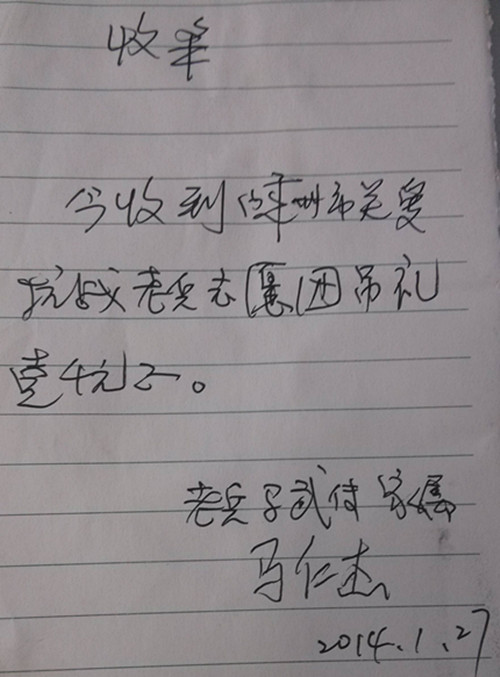 收单
今收到 州市关爱
抗战老兵志愿团吊礼
壹仟元正。
老兵 武 家属
马仁杰
2014.1.27